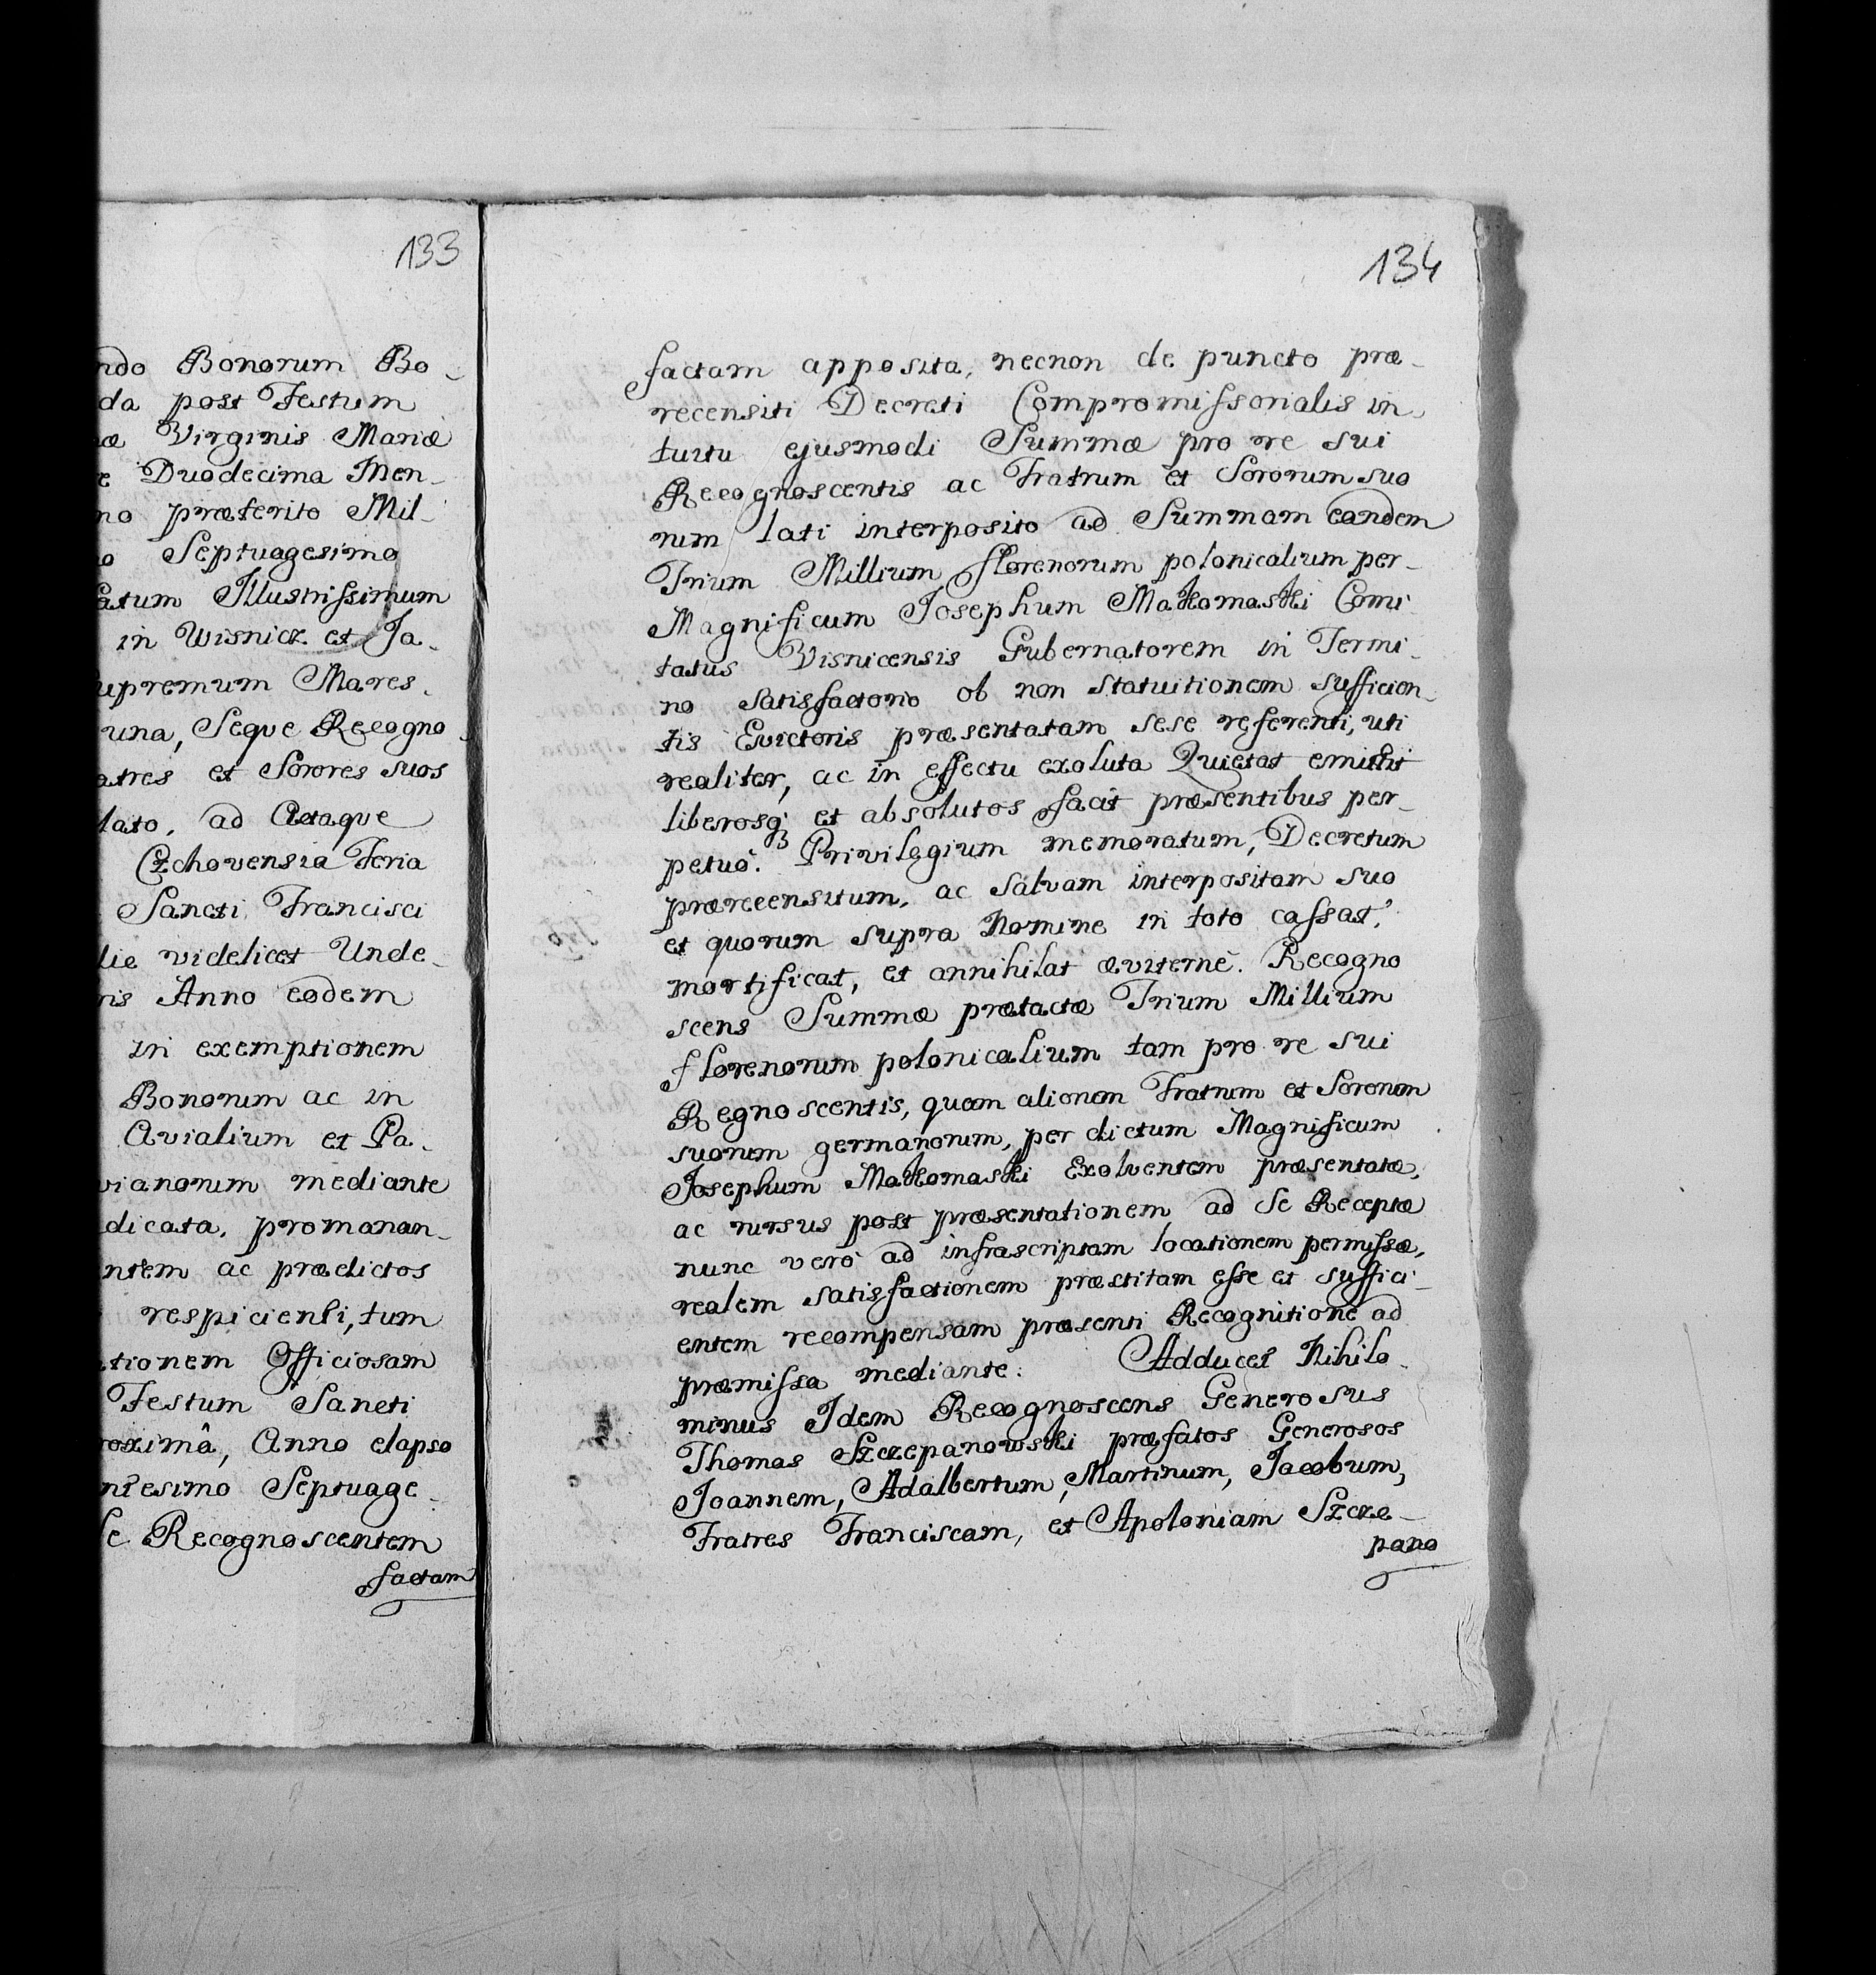 133
ndo Bonorum Bo-
da post Festum
æ Virginis Mariæ
e Duodecima Men-
no præterito Mil-
o Septuagesimo
fatum Illustrissimum
in Wisnicz et Ja-
upremum Mares-
una, Seque Recogno
atres et Sorores suos
lato, ad Actaque
Czchovensia Feria
Sancti Francisci
die videlicet Unde-
ris Anno eodem
in exemptionem
Bonorum ac in
Avialium et Pa-
vianorum mediante
dicata, promanan-
ntem ac prædictos
respicienti, tum
ationem Officiosam
Festum Sancti
roximâ, Anno elapso
ntesimo Septuage-
Se Recognoscentem
factam
134
factam apposita, necnon de puncto præ-
recensiti Decreti Compromissorialis in-
tuitu ejusmodi Summæ pro re sui
Recognoscentis ac Fratrum et Sororum suo
rum lati interposito ad Summam eandem
Trium Millium florenorum polonicalium per-
Magnificum Josephum Makomaski Comi-
tatus Visnicensis Gubernatorem in Termi-
no satisfactorio ob non statuitionem sufficien-
tis Evictoris præsentatam sese referenti, uti
realiter, ac in effectu exoluta Quietat emittit
liberosq3 et absolutos facit præsentibus per-
petuò. Privilegium memoratum, Decretum
prærecensitum, ac salvam interpositam suo
et quorum supra Nomine in toto cassat,
mortificat, et annihilat æviternè. Recogno
scens Summæ prætactæ Trium Millium
florenorum polonicalium tam pro re sui
Regnoscentis, quam aliorum Fratrum et Sororum
suorum germanorum, per dictum Magnificum
Josephum Makomaski Exolventem præsentatæ,
ac rursus post præsentationem ad se Receptæ
nunc verò ad infrascriptam locationem permissæ,
realem satisfactionem præstitam esse et suffici-
entem recompensam præsenti Recognitione ad
præmissa mediante. Adducet Nihilo-
minus Idem Recognoscens Generosus
Thomas Szczepanowski præfatos Generosos
Joannem, Adalbertum, Martinum, Jacobum,
Fratres Franciscam, et Apoloniam Szcze-
pano